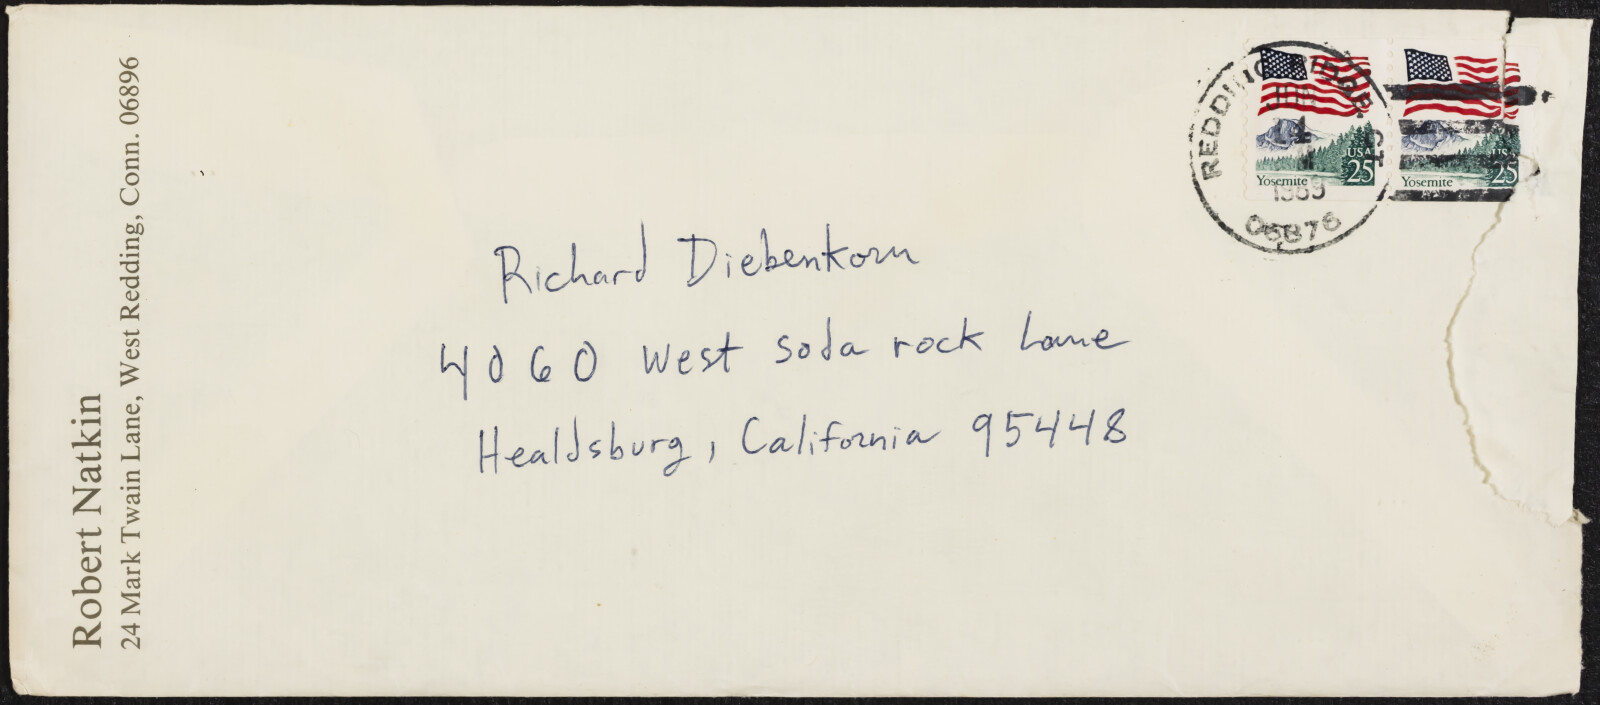 Robert Natkin
24 Mark Twain Lane, West Redding, Conn. 06896
REDDING RIDGE CT
1989
06876
USA
25
Yosemite
25
Yosemite
Richard Diebenkorn
4060 West soda rock Lane
Healdsburg, California 95448